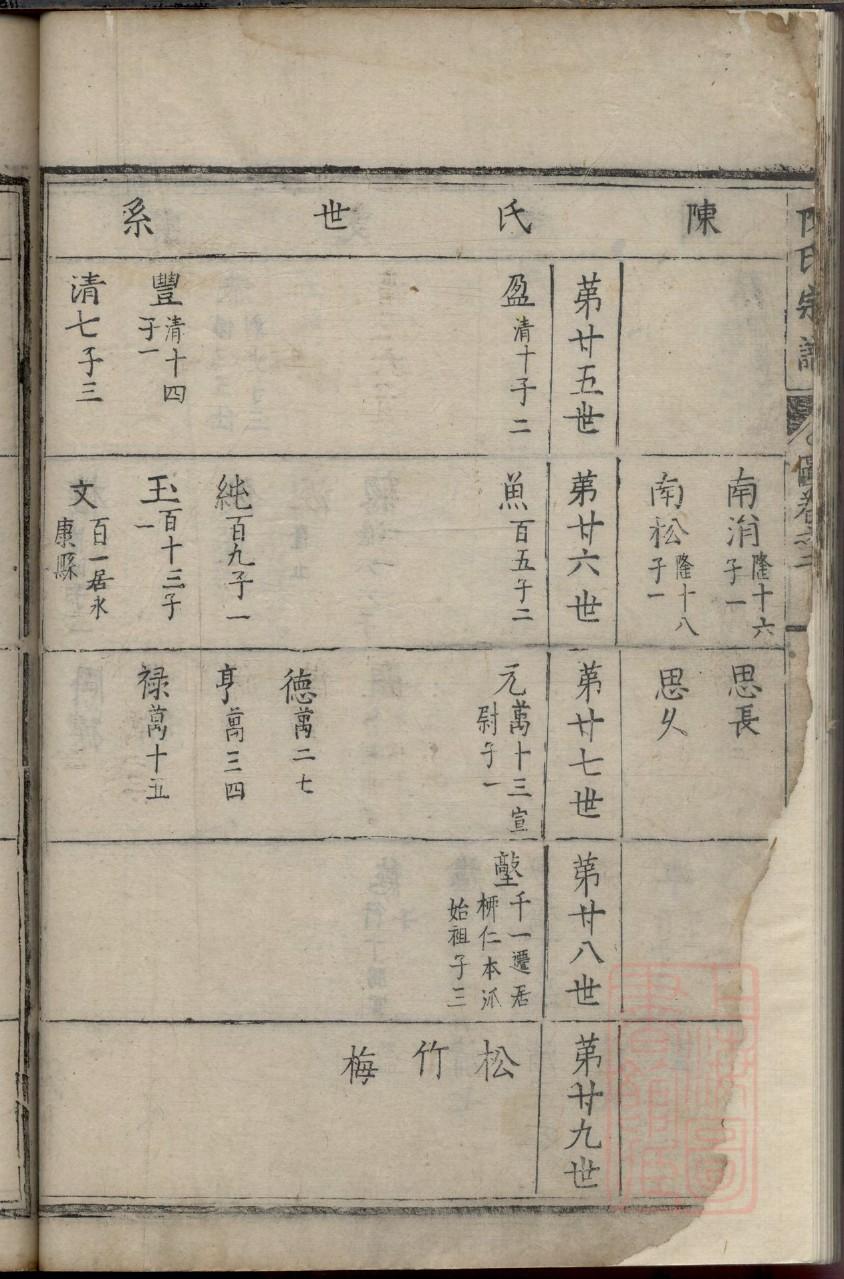 陳氏世系
南㳙 隆十六子一
南松 隆十八子一
思長
思久
第廿五世
第廿六世
第廿七世
第廿八世
第廿九世
盈 清十子二
魚 百五子二
元 萬十三宣尉子一
千一遷居
栟仁本派
始祖子三
松
竹
梅
德 萬二七
純 百九子一
亨 萬三四
豐 清十四子一
玉 百十三子一
禄 萬十五
清七子三
文 百一居永康縣